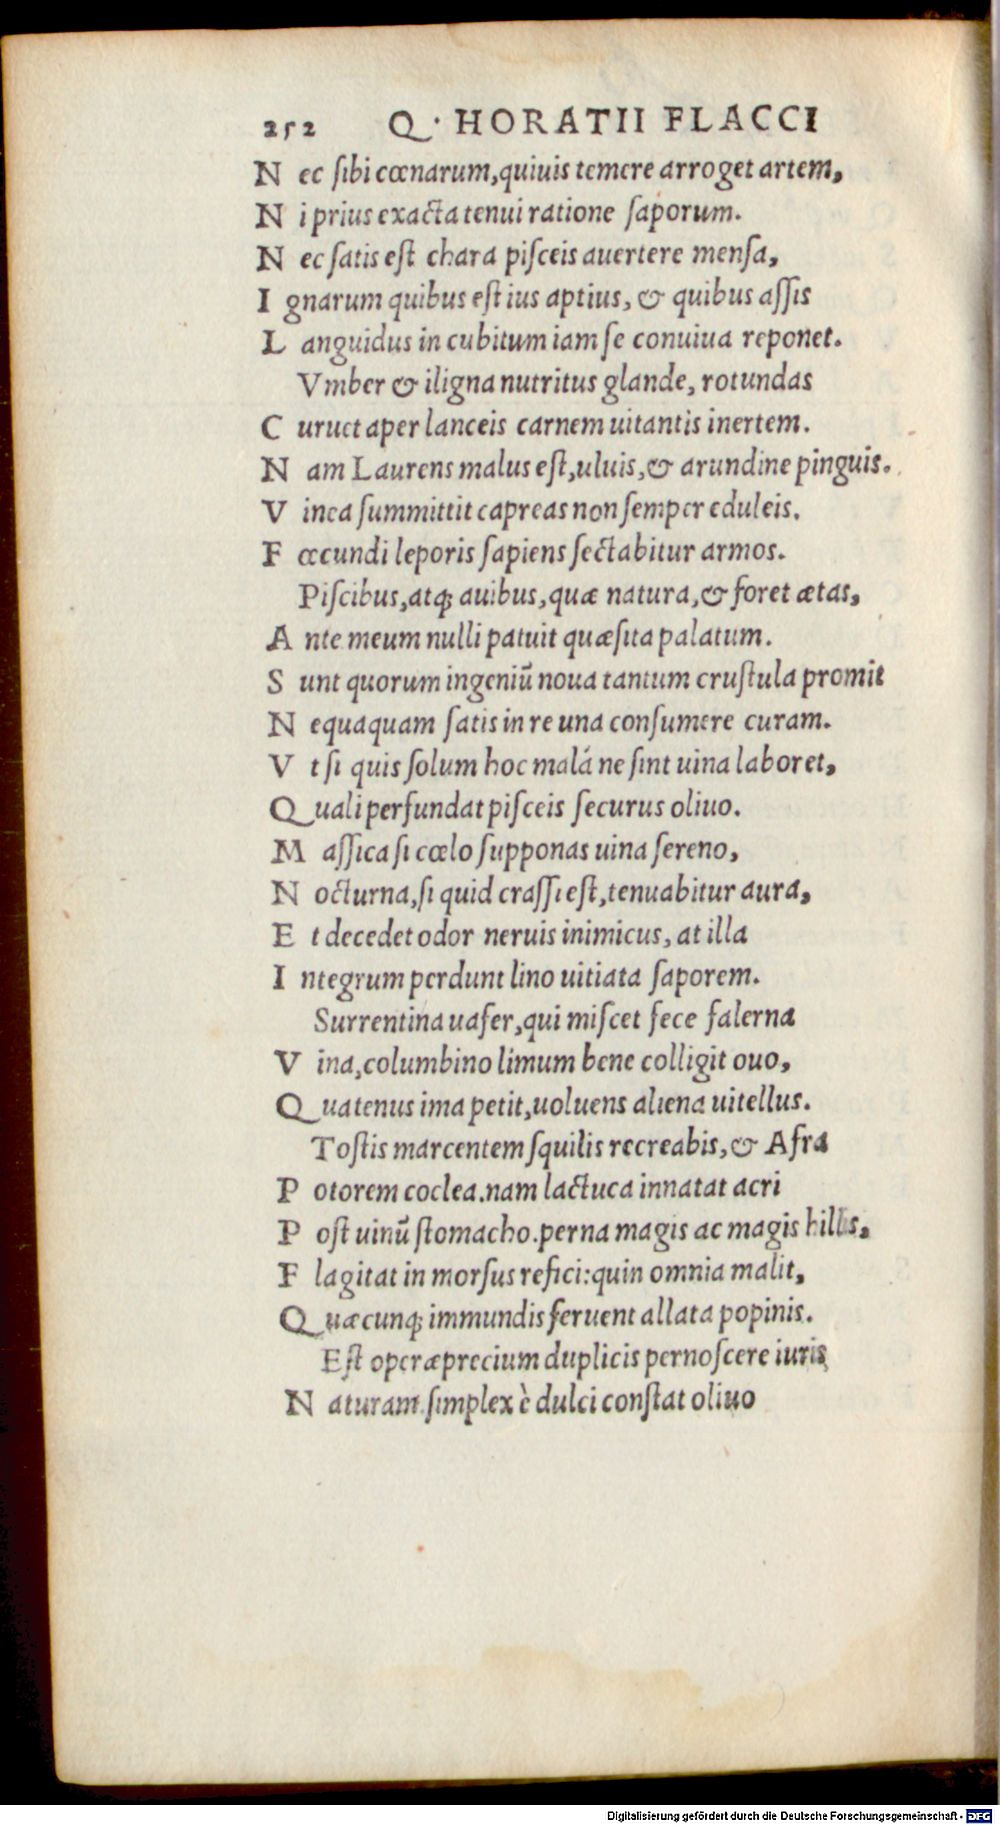 252 Q. HORATII FLACCI
N ec ſibi cœnarum, quiuis temere arroget artem,
N i prius exacta tenui ratione ſaporum.
N ec ſatis eſt chara piſceis auertere menſa,
I gnarum quibus eſt ius aptius, & quibus aſſis
L anguidus in cubitum iam ſe conuiua reponet.
Vmber & iligna nutritus glande, rotundas
C uruet aper lanceis carnem uitantis inertem.
N am Laurens malus eſt, uluis, & arundine pinguis.
V inea ſummittit capreas non ſemper eduleis.
F œcundi leporis ſapiens ſectabitur armos.
Piſcibus, atq; auibus, quæ natura, & foret ætas,
A nte meum nulli patuit quæſita palatum.
S unt quorum ingeniũ noua tantum cruſtula promit
N equaquam ſatis in re una conſumere curam.
V t ſi quis ſolum hoc malá ne ſint uina laboret,
Q uali perfundat piſceis ſecurus oliuo.
M aſſica ſi cœlo ſupponas uina ſereno,
N octurna, ſi quid craſſi eſt, tenuabitur aura,
E t decedet odor neruis inimicus, at illa
I ntegrum perdunt lino uitiata ſaporem.
Surrentina uafer, qui miſcet fece falerna
V ina, columbino limum bene colligit ouo,
Q uatenus ima petit, uoluens aliena uitellus.
Toſtis marcentem ſquilis recreabis, & Afra
P otorem coclea. nam lactuca innatat acri
P oſt uinũ ſtomacho. perna magis ac magis hillis,
F lagitat in morſus refici: quin omnia malit,
Q uæcunq; immundis feruent allata popinis.
Eſt operæprecium duplicis pernoſcere iuris
N aturam. ſimplex è dulci conſtat oliuo
Digitalisierung gefördert durch die Deutsche Forschungsgemeinschaft - DFG